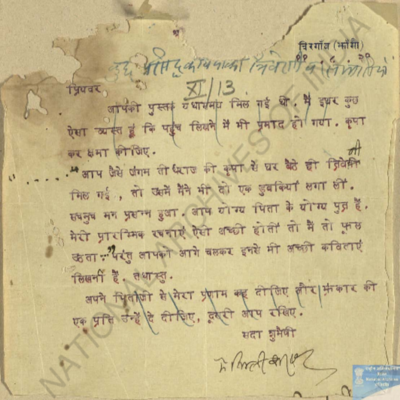 चिरगाँव (झाँसी)
XI/13
प्रियवर
आपकी पुस्तक यथासमय मिल गई थी. मैं इधर कुछ
ऐसा व्यस्त हूँ कि पहुँच लिखने में भी प्रमाद हो गया. कृपा
कर क्षमा कीजिए.
आप जैसे जंगम की कृपा से घर बैठे ही त्रिवेणी
मिल गई, तो उसमें मैंने भी दो एक डुबकियाँ लगा लीं.
सचमुच मन प्रसन्न हुआ. आप योग्य पिता के योग्य पुत्र हैं.
मेरी प्रारम्भिक रचनाएँ ऐसी अच्छी होतीं तो मैं तो फूल
उठता. परंतु आपको आगे चलकर इनसे भी अच्छी कविताएँ
लिखनी हैं. तथास्तु.
अपने पिताजी से मेरा प्रणाम कह दीजिए और की
एक प्रति उन्हें दे दीजिए, दूसरी आप रखिए.
सदा शुभैषी
NATIONAL ARCHIVES OF INDIA